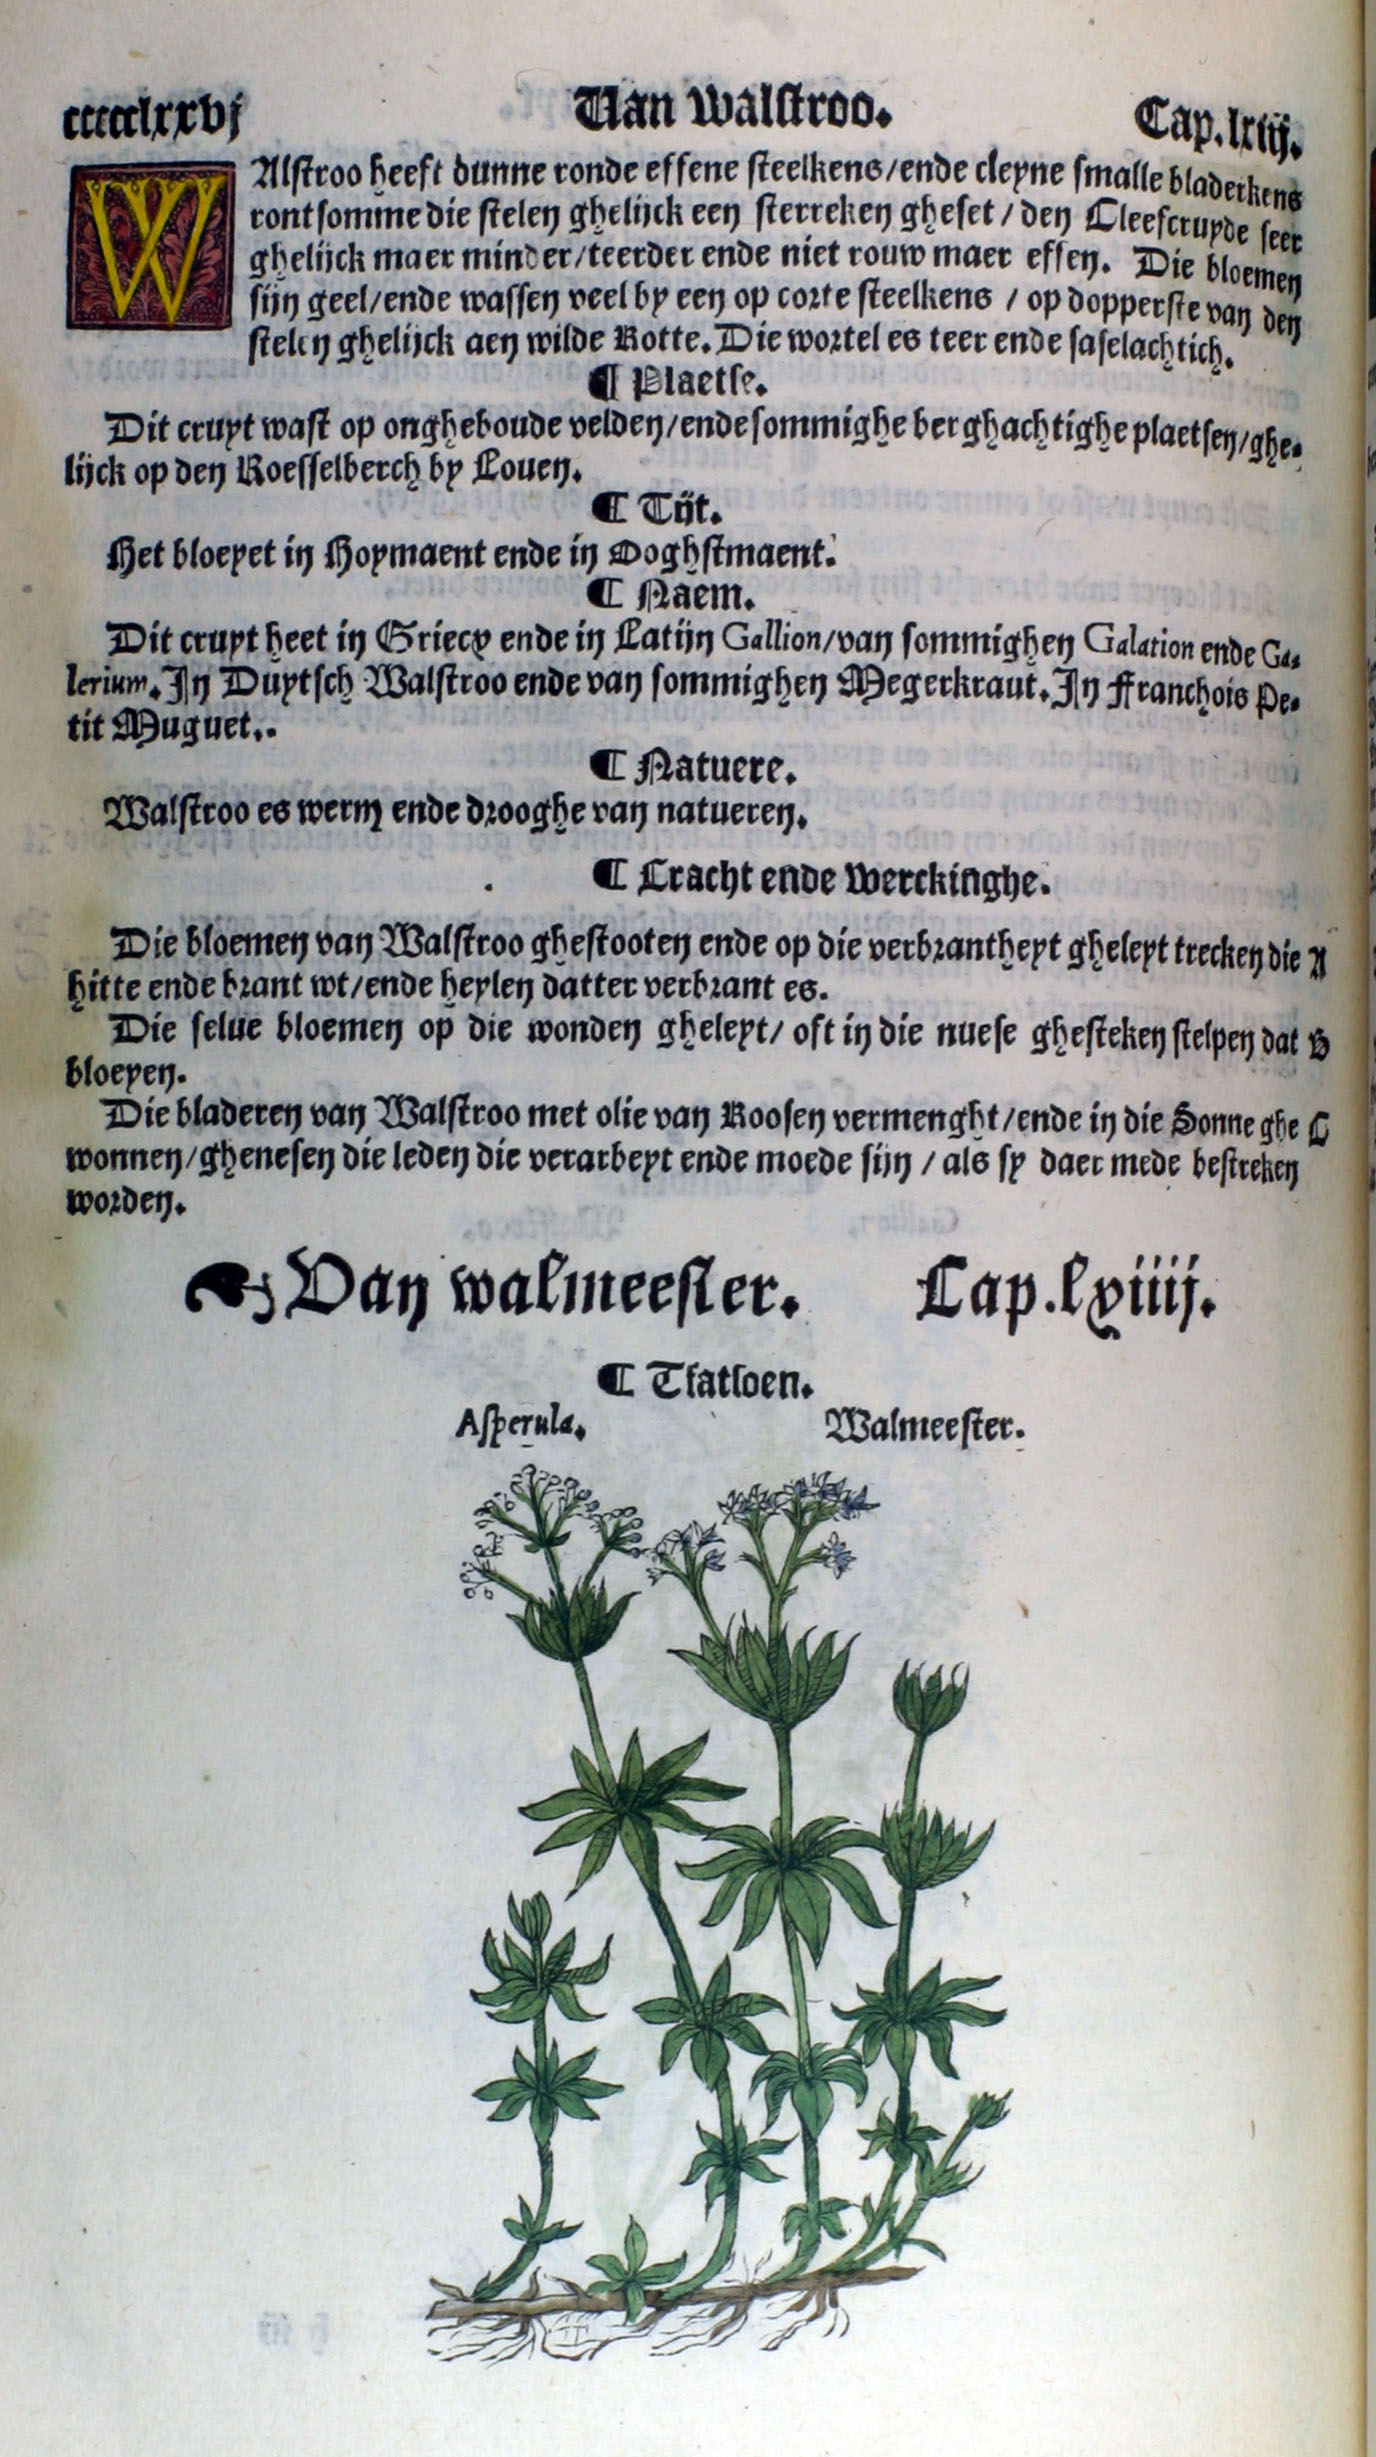 cccccclxxvj Van walstroo. Cap.lxiij.
WAlstroo heeft dunne ronde effene steelkens/ende cleyne smalle bladerkens
rontsomme die stelen ghelijck een sterreken gheset / den Cleefcruyde seer
ghelijck maer minder/teerder ende niet rouw maer effen. Die bloemen
sijn geel/ende wassen veel by een op corte steelkens / op dopperste van den
stelen ghelijck aen wilde Rotte. Die wortel es teer ende faselachtich.
¶ Plaetse.
Dit cruyt wast op ongheboude velden/ende sommighe berghachtighe plaetsen/ghe-
lijck op den Roesselberch by Loven.
¶ Tijt.
Het bloeyet in Hoymaent ende in Ooghstmaent.
¶ Naem.
Dit cruyt heet in Griecx ende in Latijn Gallion/van sommighen Galation ende Ga-
lerium. In Duytsch Walstroo ende van sommighen Megerkraut. In Franchois Pe-
tit Muguet..
¶ Natuere.
Walstroo es werm ende drooghe van natueren.
¶ Cracht ende Werckinghe.
Die bloemen van Walstroo ghestooten ende op die verbrantheyt gheleyt trecken die A
hitte ende brant wt/ende heylen datter verbrant es.
Die selue bloemen op die wonden gheleyt/ oft in die nuese ghesteken stelpen dat B
bloeyen.
Die bladeren van Walstroo met olie van Roosen vermenght/ende in die Sonne ghe C
wonnen/ghenesen die leden die verarbeyt ende moede sijn / als sy daer mede bestreken
worden.
Van walmeester. Cap.lxiiij.
¶ Tfatsoen.
Asperula. Walmeester.